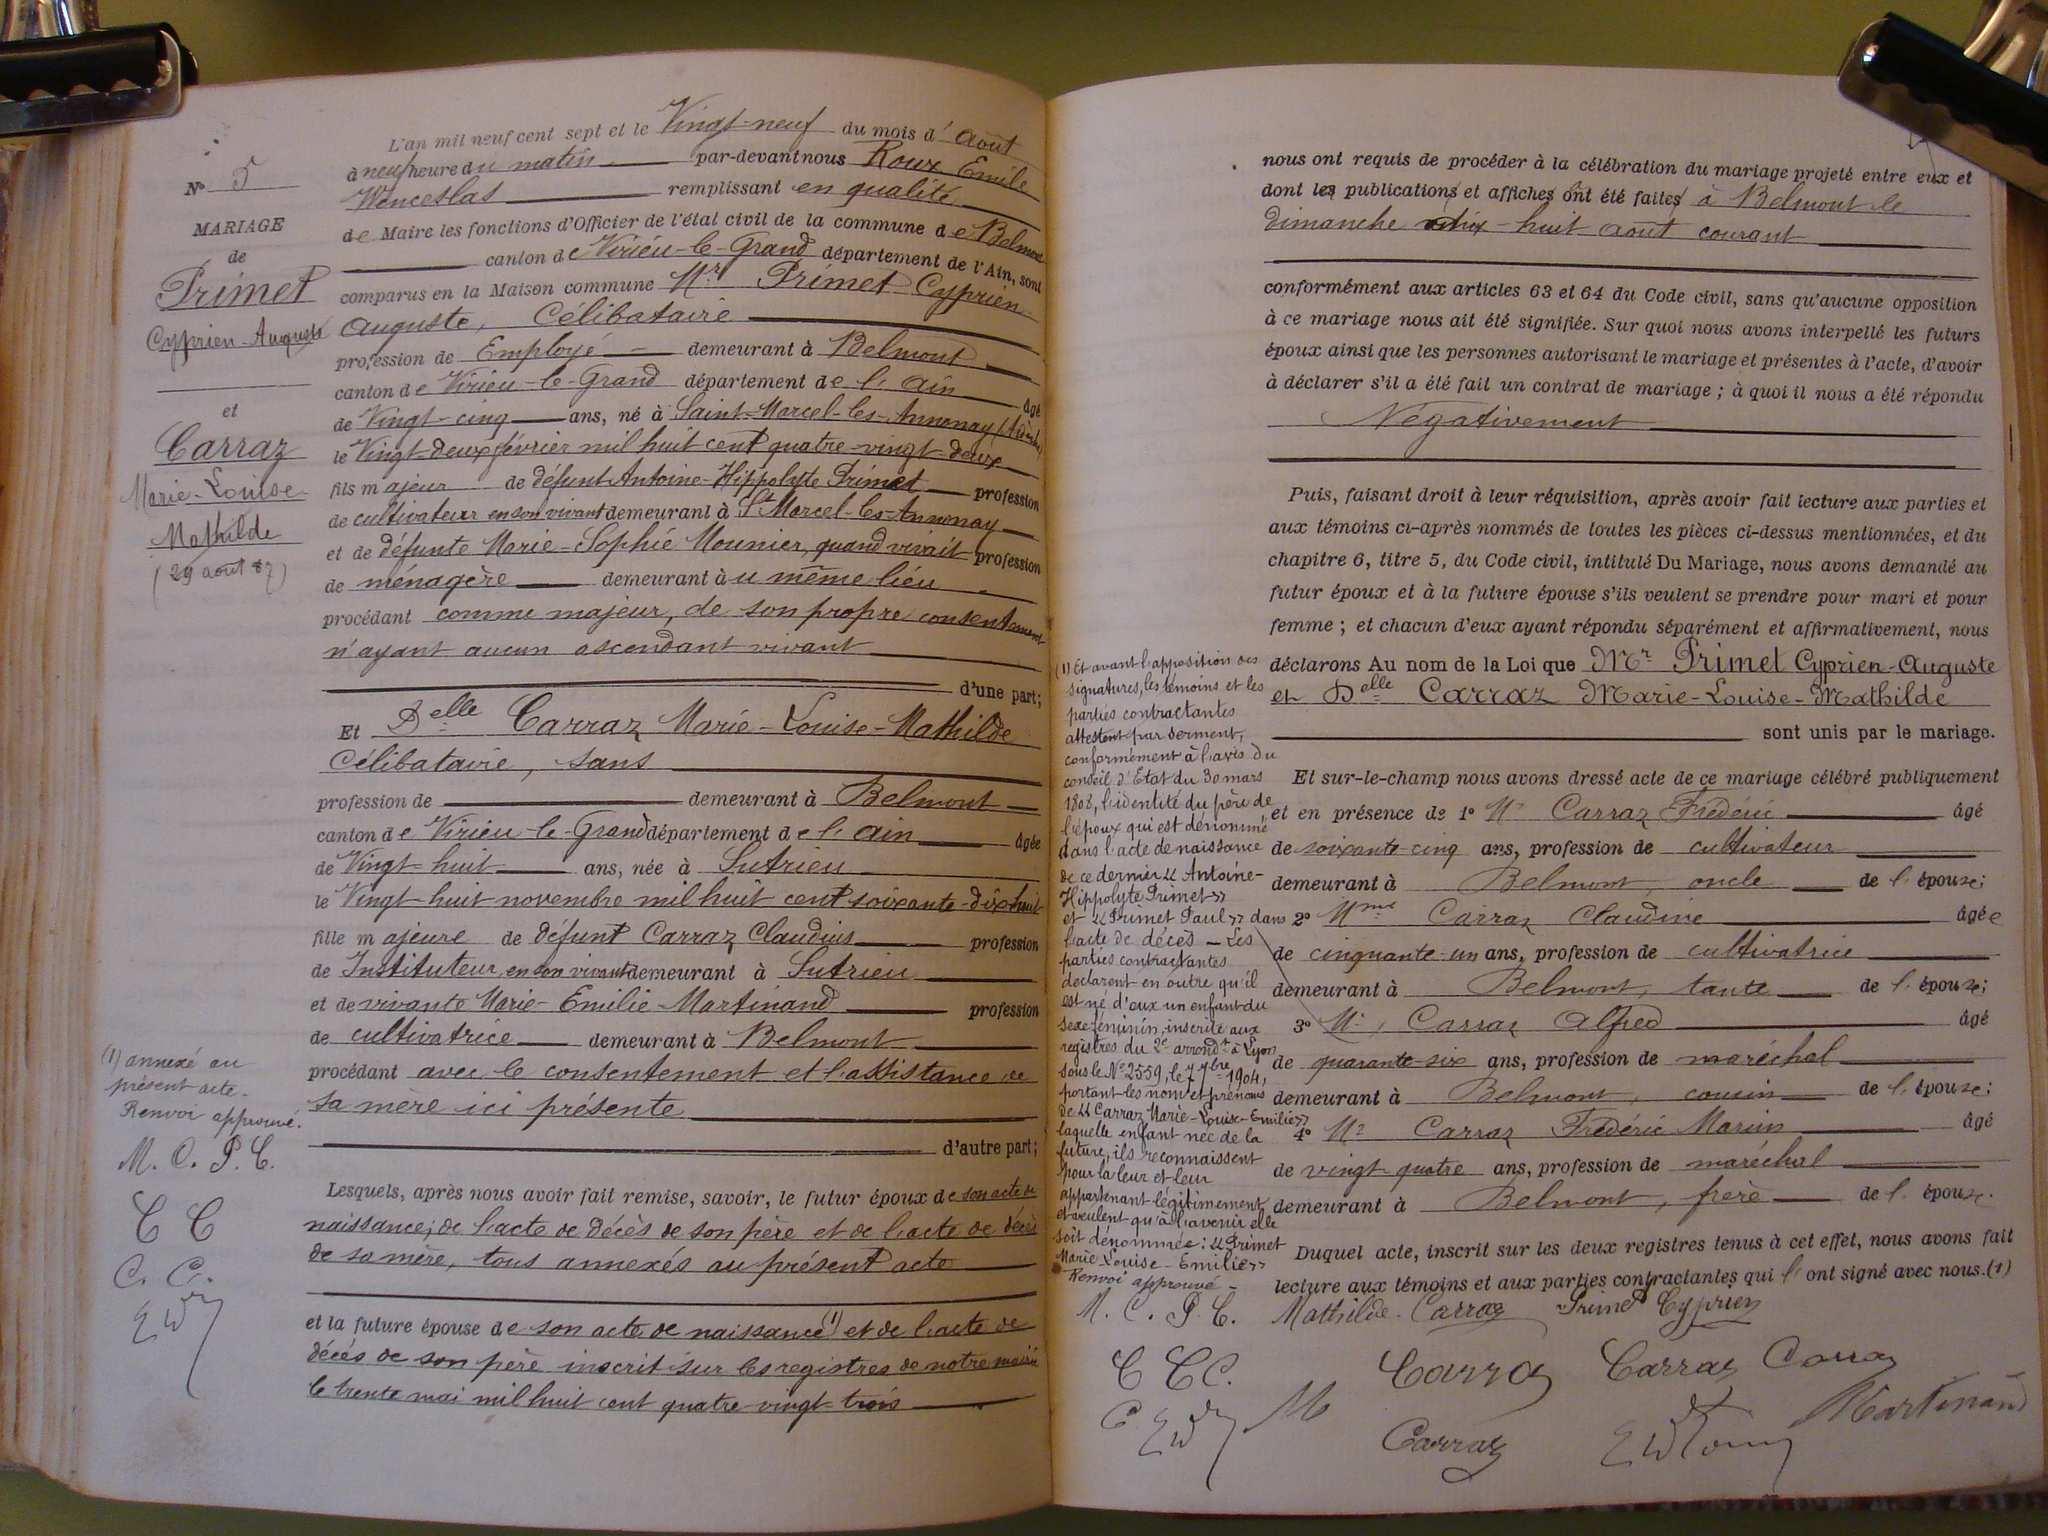 L'an mil neuf cent sept et le Vingt-neuf du mois d'août
à neuf heure du matin par-devant nous Roux Emile
Wenceslas remplissant en qualité
de Maire les fonctions d'Officier de l'état civil de la commune de Belmont
canton de Virieu-le-Grand département de l'Ain, sont
comparus en la Maison commune Mr Primet Cyprien
Auguste, Célibataire
profession de Employé demeurant à Belmont
canton de Virieu-le-Grand département de l'ain âgé
de Vingt-cinq ans, né à Saint-Marcel-les-Annonay (Ardèche)
le Vingt-deux février mil huit cent quatre-vingt-deux
fils majeur de défunt Antoine-Hippolyte Primet profession
de cultivateur en son vivant demeurant à St Marcel-les-Annonay
et de défunte Marie-Sophie Mounier, quand vivait profession
de ménagère demeurant à u même lieu
procédant comme majeur, de son propre consentement
n'ayant aucun ascendant vivant
d'une part;
Et Delle Carraz Marie-Louise-Mathilde
Célibataire, sans
profession de demeurant à Belmont
canton de Virieu-le-Grand département de l'ain âgée
de Vingt-huit ans, née à Sutrieu
le Vingt-huit novembre mil huit cent soixante-dix-huit
fille majeure de défunt Carraz Claudius profession
de Instituteur, en son vivant demeurant à Sutrieu
et de vivante Marie-Emilie-Martinand profession
de cultivatrice demeurant à Belmont
procédant avec le consentement et l'assistance de
sa mère ici présente
d'autre part;
Lesquels, après nous avoir fait remise, savoir, le futur époux de son acte de
naissance; de l'acte de décès de son père et de l'acte de décès
de sa mère, tous annexés au présent acte
et la future épouse de son acte de naissance (1) et de l'acte de
décès de son père inscrit sur les registres de notre mairie
le trente mai mil huit cent quatre-vingt-trois
N° 5
MARIAGE
de
Primet
Cyprien-Auguste
et
Carraz
Marie-Louise-
Mathilde
(29 août 87)
(1) annexé au
présent acte.
Renvoi approuvé.
M. C. P. C.
C C
C. C.
nous ont requis de procéder à la célébration du mariage projeté entre eux et
dont les publications et affiches ont été faites à Belmont le
dimanche dix-huit août courant
conformément aux articles 63 et 64 du Code civil, sans qu'aucune opposition
à ce mariage nous ait été signifiée. Sur quoi nous avons interpellé les futurs
époux ainsi que les personnes autorisant le mariage et présentes à l'acte, d'avoir
à déclarer s'il a été fait un contrat de mariage; à quoi il nous a été répondu
Négativement
Puis, faisant droit à leur réquisition, après avoir fait lecture aux parties et
aux témoins ci-après nommés de toutes les pièces ci-dessus mentionnées, et du
chapitre 6, titre 5, du Code civil, intitulé Du Mariage, nous avons demandé au
futur époux et à la future épouse s'ils veulent se prendre pour mari et pour
femme; et chacun d'eux ayant répondu séparément et affirmativement, nous
déclarons Au nom de la Loi que Mr Primet Cyprien-Auguste
et Delle Carraz Marie-Louise-Mathilde
sont unis par le mariage.
Et sur-le-champ nous avons dressé acte de ce mariage célébré publiquement
et en présence de 1° Mr Carraz Frédéric âgé
de soixante-cinq ans, profession de cultivateur
demeurant à Belmont, oncle de l'épouse;
2° Mme Carraz Claudine âgée
de cinquante-un ans, profession de cultivatrice
demeurant à Belmont, tante de l'épouse;
3° Mr, Carraz Alfred âgé
de quarante-six ans, profession de maréchal
demeurant à Belmont, cousin de l'épouse;
4° Mr Carraz Frédéric Marius âgé
de vingt quatre ans, profession de maréchal
demeurant à Belmont, frère de l'épouse.
Duquel acte, inscrit sur les deux registres tenus à cet effet, nous avons fait
lecture aux témoins et aux parties contractantes qui l'ont signé avec nous. (1)
Mathilde Carraz Primet Cyprien
Carraz Carraz Carraz
Martinand
Carraz
(1) Et avant l'apposition des
signatures, les témoins et les
parties contractantes
attestent par serment,
conformément à l'avis du
conseil d'Etat du 30 mars
1808, l'identité du père de
l'époux qui est dénommé
dans l'acte de naissance
de ce dernier « Antoine-
Hippolyte Primet »
et « Primet Paul » dans
l'acte de décès - Les
parties contractantes
déclarent en outre qu'il
est né d'eux un enfant du
sexe féminin, inscrite aux
registres du 2e arrondt à Lyon
sous le N° 2559, le 7 7bre 1904,
portant les nom et prénoms
de « Carraz Marie-Louise-Emilie »
laquelle enfant née de la
future, ils reconnaissent
pour la leur et leur
appartenant légitimement
et veulent qu'à l'avenir elle
soit dénommée: « Primet
Marie Louise-Emilie »
Renvoi approuvé -
M. C. P. C.
C C C.
C. M